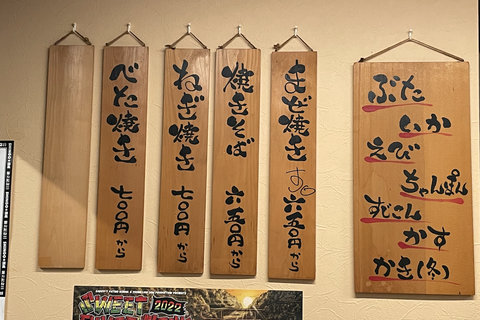 まぜ焼き 六五〇円から
焼きそば 六五〇円から
ねぎ焼き 七〇〇円から
べた焼き 七〇〇円から
ぶた
いか
えび
ちゃんぽん
すじこん
かす
かき(冬)
SWEET
2022